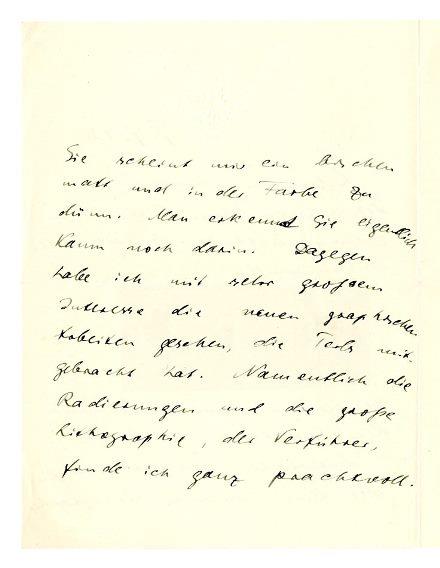 Sie scheint mir ein bischen
matt und in der Farbe zu
dünn. Man erkennt Sie eigentlich
kaum noch darin. Dagegen
habe ich mit sehr großem
Interesse die neuen graphischen
Arbeiten gesehen, die mit-
gebracht hat. Namentlich die
Radierungen und die große
Lithographie, der Verführer,
finde ich ganz prachtvoll.